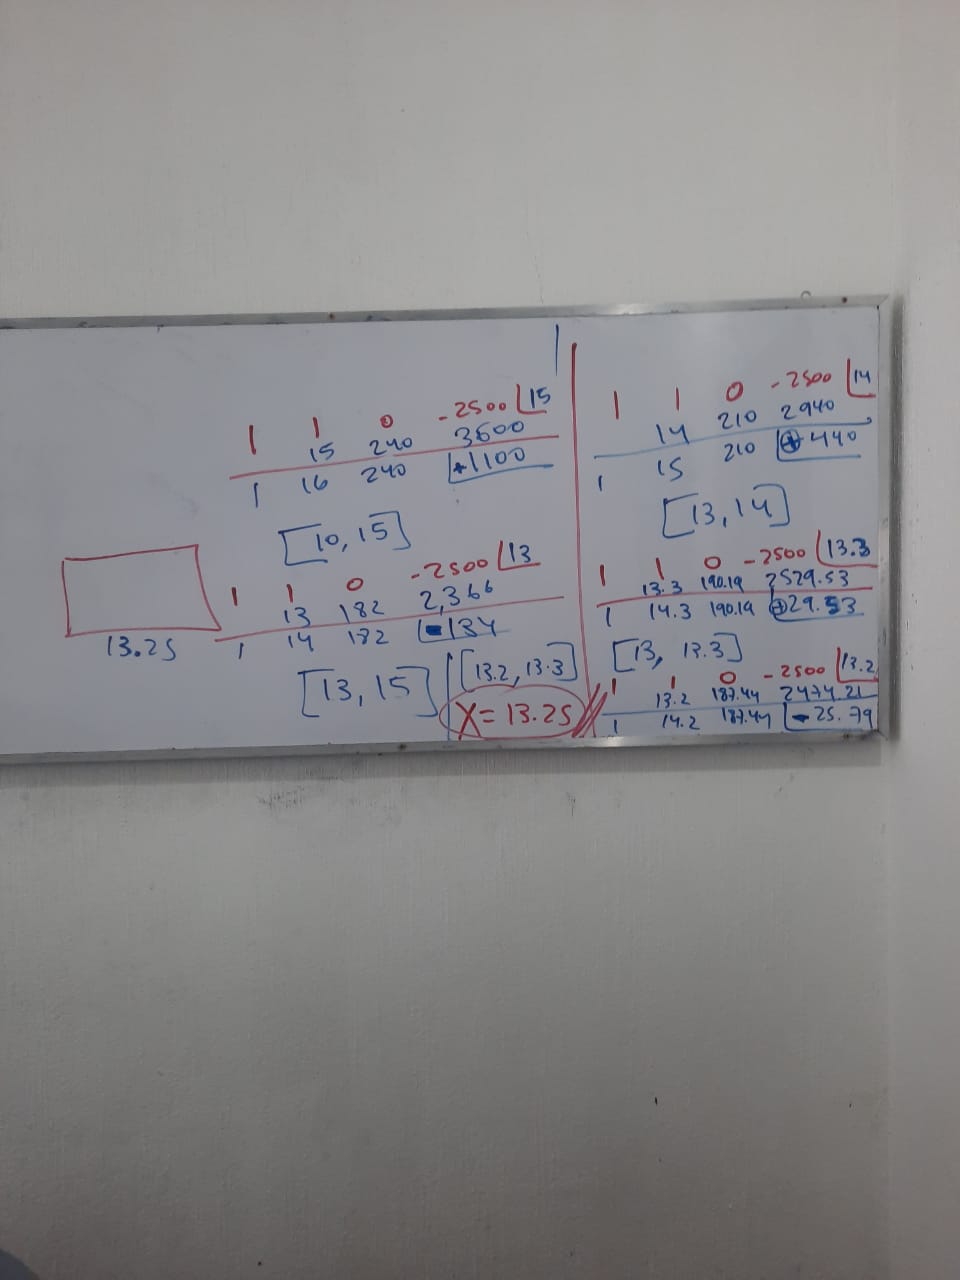 1 1 0 -2500 15
15 240 3600
1 16 240 +1100
[10, 15]
1 1 0 -2500 13
13 182 2,366
1 14 182 -134
[13, 15] [13.2, 13.3]
X = 13.25
13.25
1 1 0 -2500 14
14 210 2940
1 15 210 +440
[13, 14]
1 1 0 -2500 13.3
13.3 190.19 2529.53
1 14.3 190.19 +29.53
[13, 13.3]
1 1 0 -2500 13.2
13.2 187.44 2474.21
1 14.2 187.44 -25.79